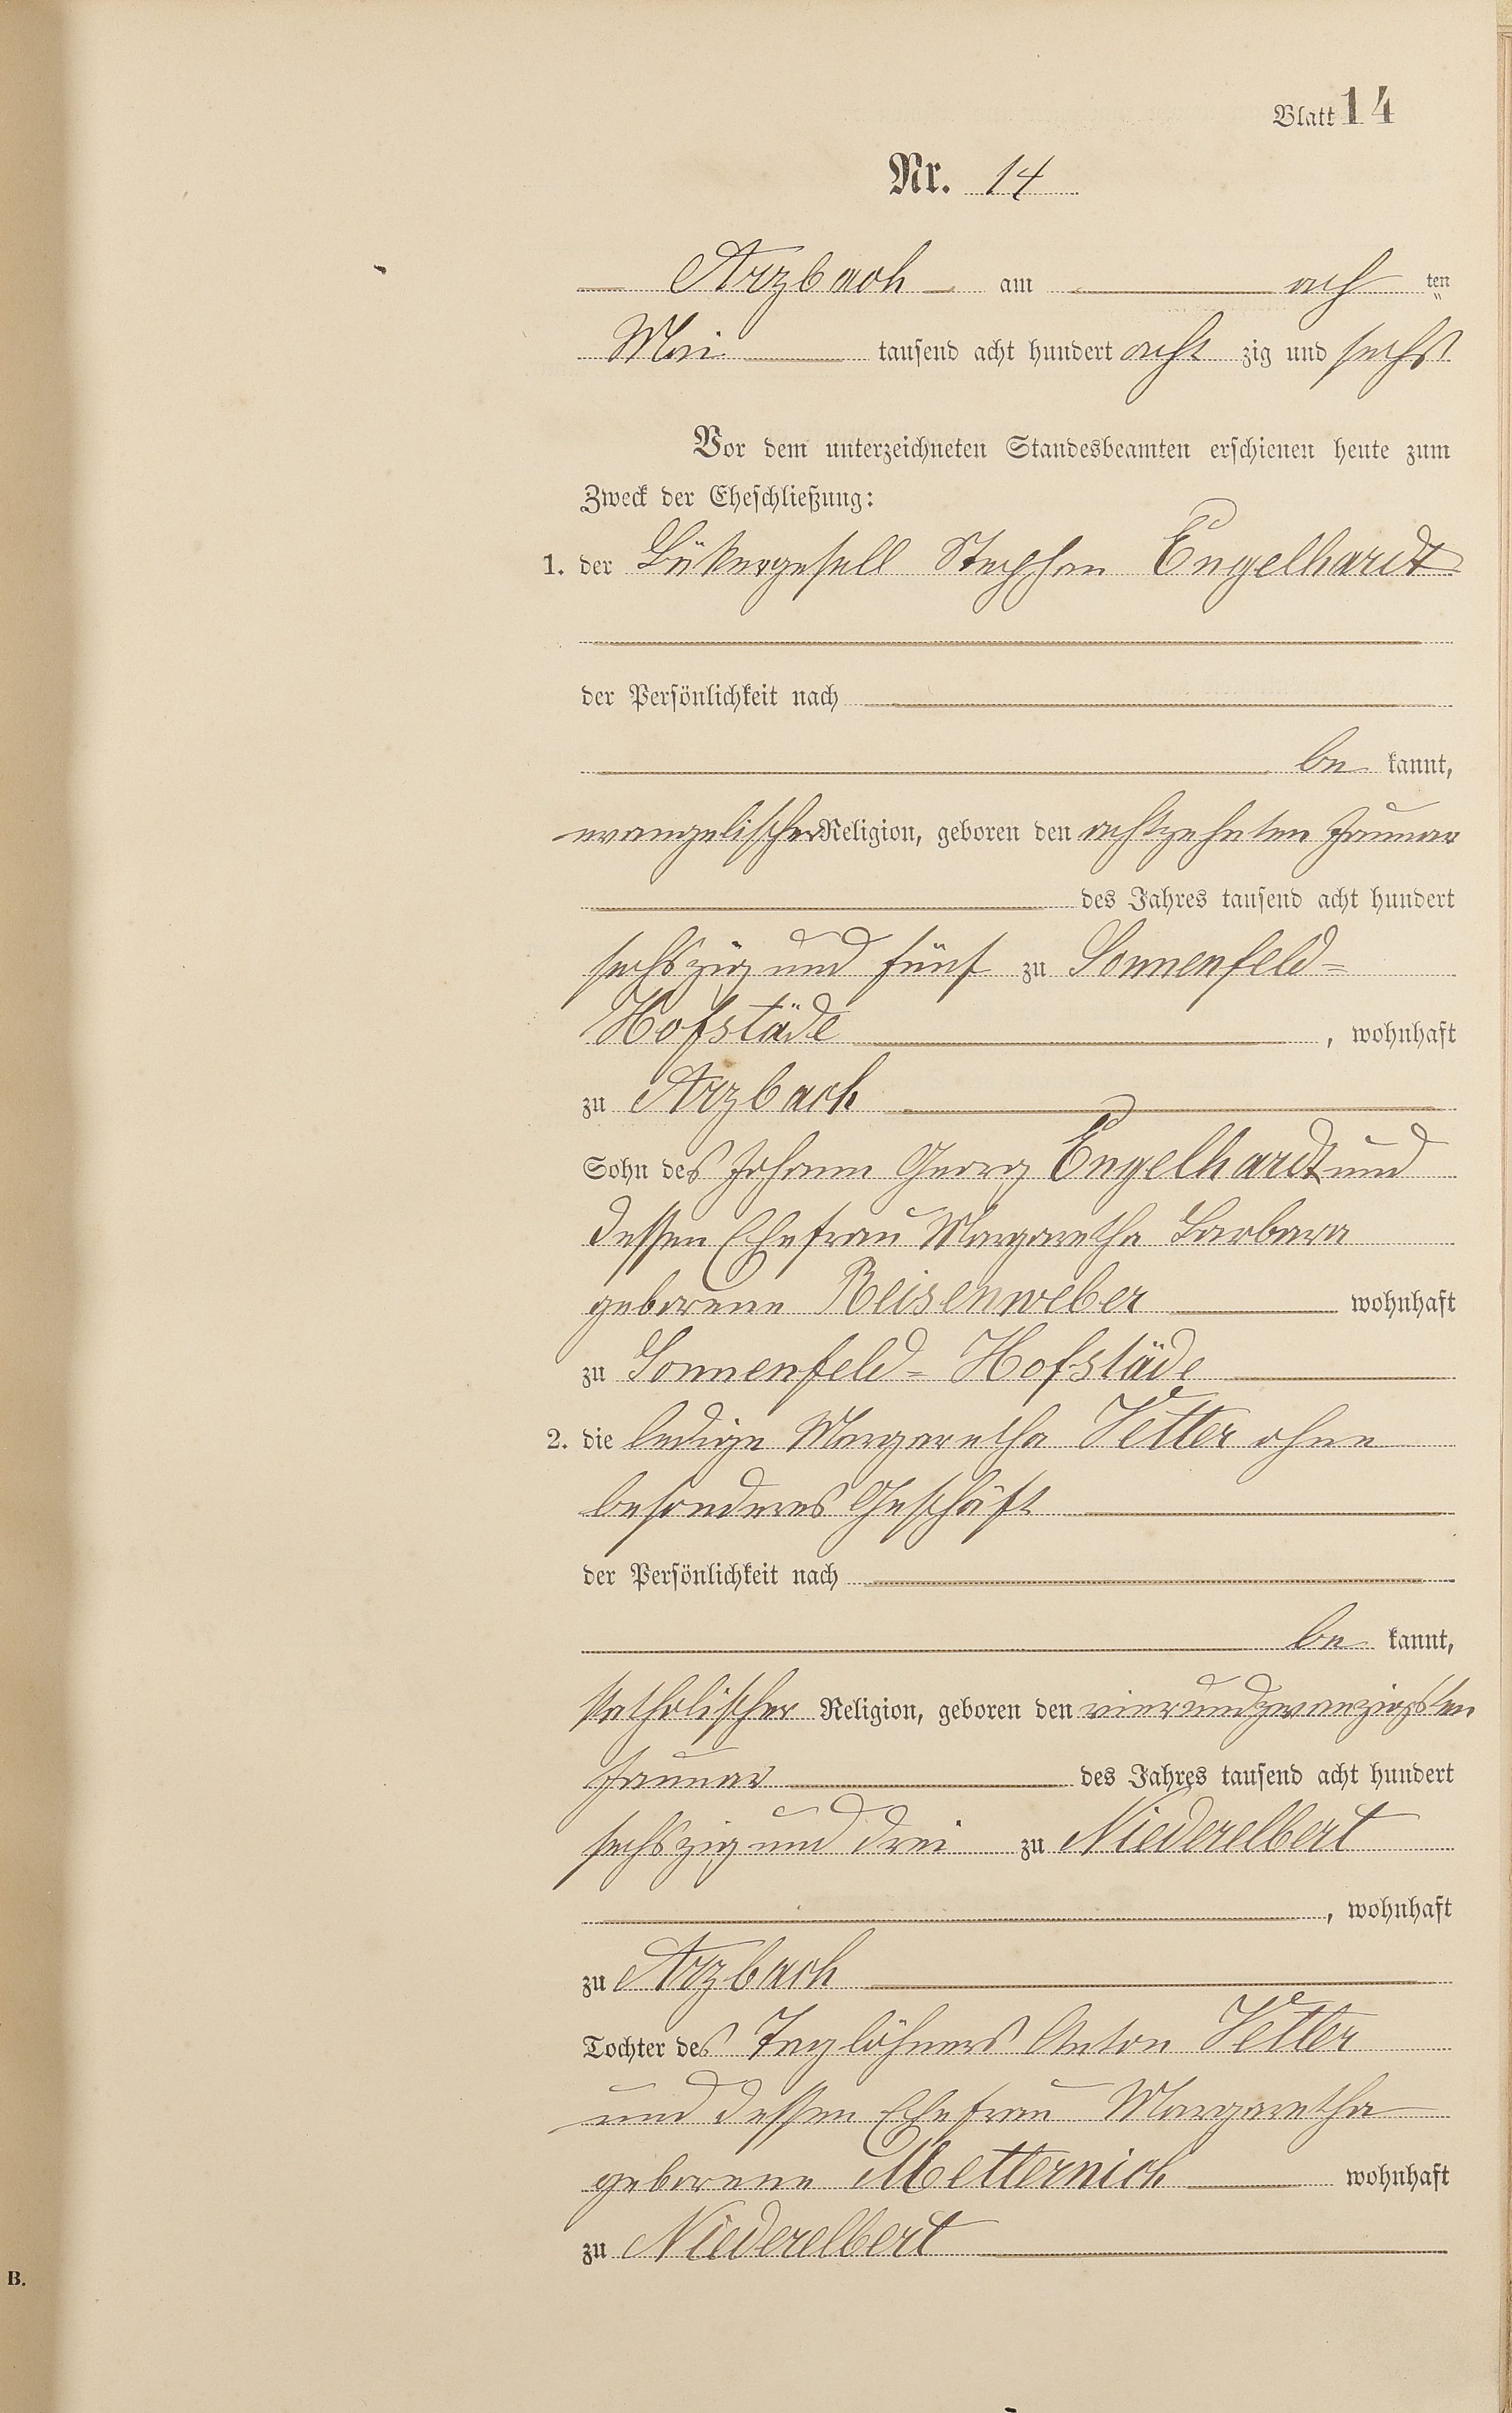 Blatt 14
Nr. 14
Arzbach am ach ten
Mai tausend acht hundert acht zig und sechs
Vor dem unterzeichneten Standesbeamten erschienen heute zum
Zweck der Eheschließung:
1. der Bükergesell Stephan Engelhardt
der Persönlichkeit nach
be kannt,
evangelischer Religion, geboren den achtzehnten Januar
des Jahres tausend acht hundert
sechszig und fünf zu Sonnenfeld=
Hofstäde, wohnhaft
zu Arzbach
Sohn des Johann Georg Engelhardt und
dessen Ehefrau Margaretha Barbara
geborene Reisenweber wohnhaft
zu Sonnenfeld=Hofstäde
2. die ledige Margaretha Vetter ohne
besonderes Geschäft
der Persönlichkeit nach
be kannt,
katholischer Religion, geboren den vierundzwanzigsten
Januar des Jahres tausend acht hundert
sechszig und drei zu Niederelbert
, wohnhaft
zu Arzbach
Tochter des Taglöhners Anton Vetter
und dessen Ehefrau Margaretha
geborene Metternich wohnhaft
zu Niederelbert
B.